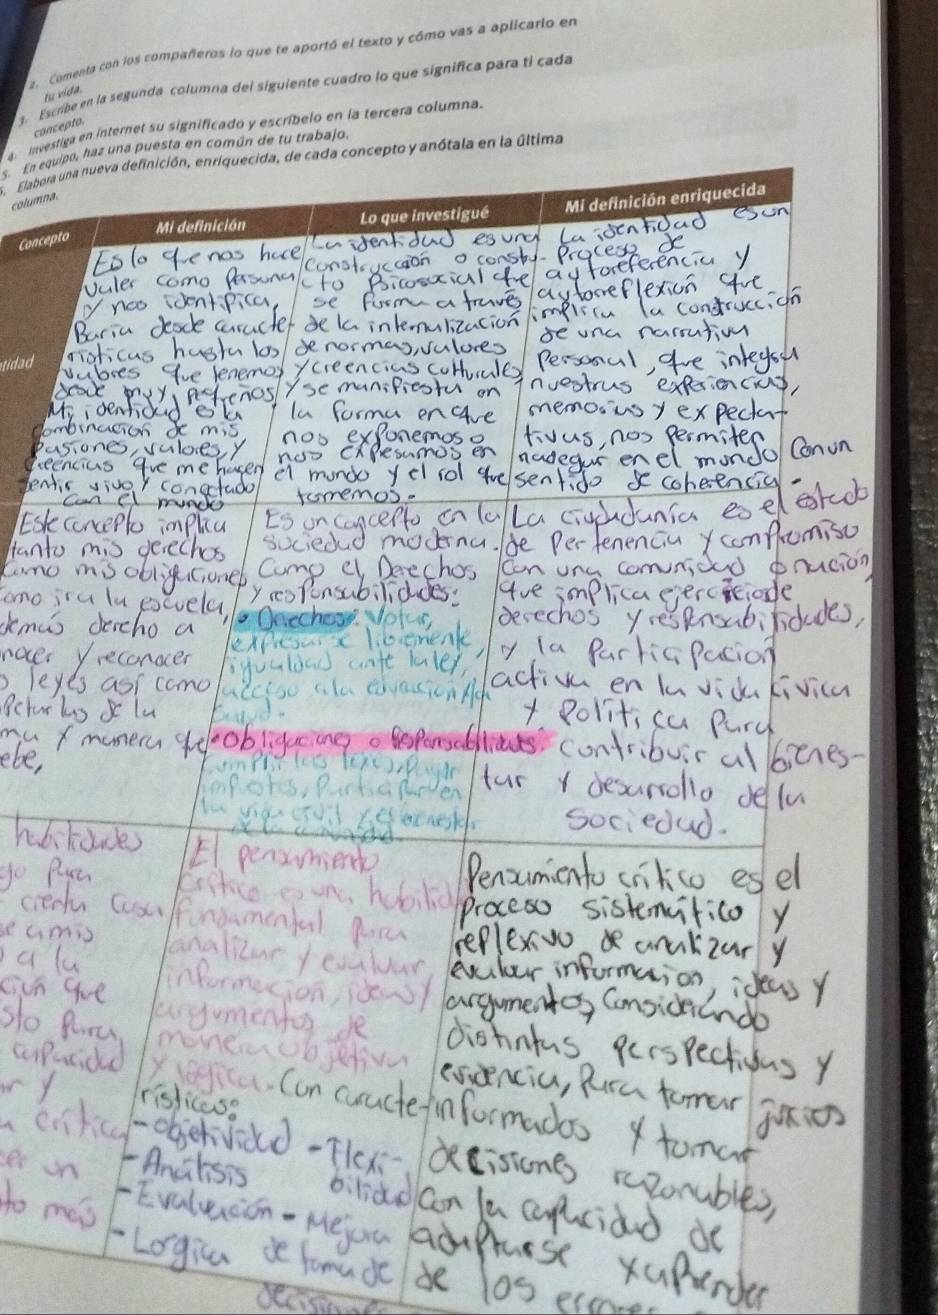 2. Comenta con los compañeros lo que te aportó el texto y cómo vas a aplicarlo en
tu vida.
3. Escribe en la segunda columna del siguiente cuadro lo que significa para ti cada
concepto.
4. Investiga en internet su significado y escríbelo en la tercera columna.
5. En equipo, haz una puesta en común de tu trabajo.
6. Elabora una nueva definición, enriquecida, de cada concepto y anótala en la última
columna.
Concepto
Mi definición
Lo que investigué
Mi definición enriquecida
tidad
Es lo qe nos hace
valer como Persona
y nos identifica,
Baria desde caracte-
risticas hasta los
valores que tenemos
desde muy peqeños
Mi identidad es la
combinacion de mis
Pasiones, valores, y
creencias que me hacen
sentir vivo y conectado
con el mundo
La identidad es una
construccion o constru-
cto Psicosocial que
se forma a través
de la internalizacion
de normas, valores
y creencias culturales
y se manifiesta en
la forma en que
nos exponemos o
nos expesamos en
el mundo y el rol que
tomemos.
La identidad es un
Proceso de
autoreferencia y
autorreflexion que
implica la construccion
de una narrativa
Personal, que integra
nuestras experiencias,
memorias y expecta-
tivas, nos permiten
nadegar en el mundo con un
sentido de coherencia.
Este concepto implica
tanto mis derechos
como mis obligaciones
como ir a la escuela,
demas dercho a
nocer y reconocer
s leyes asi como
Pctar las de la
ma y manera que
ebe,
Es un concepto en la
sociedad moderna.
Como el Derechos
y responsabilidades:
• Derechos: Votar,
expresarse libremente,
igualdad ante la ley,
acceso a la educacion y la
salud.
• obligaciones o Responsabilidades:
cumplir las leyes, pagar
impuestos, Participar en
la vida civil y
de la comunidad
La ciudadania es el estado
de Pertenencia y compromiso
con una comunidad o nacion
que implica ejercicio de
derechos y responsabilidades,
y la Participacion
activa en la vida civica
y Politica para
contribuir al bienes-
tar y desarrollo de la
sociedad.
habilidades
go Para
cierta cosa
se a mis
a la
cion que
sto Para
capacidad
y
critica
cer un
to mas
El pensamiento
Critico es una habilidad
fundamental Para
analizar y evaluar
informacion, ideas y
argumentos de
manera objetiva
y logica. Con caracte-
risticas:
- objetividad - Flexi-
bilidad
- Analisis
- Evaluacion - Mejora
- Lorgica de toma de
decisiones
Pensamiento critico es el
Proceso sistemático y
reflexivo de analizar y
evaluar informacion, ideas y
argumentos, considerando
distintas perspectivas y
evidencia, Para tomar juicios
informados y tomar
decisiones razonables,
con la capacidad de
adaptarse y aprender
de los errores